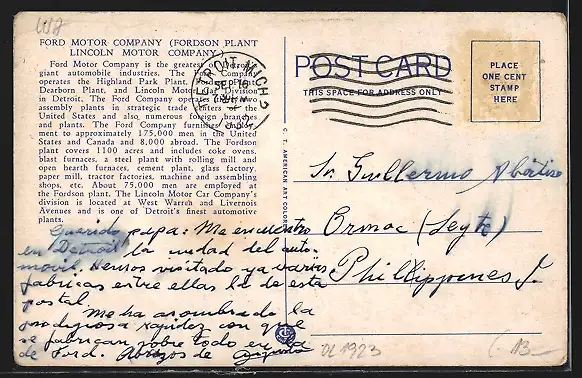 FORD MOTOR COMPANY (FORDSON PLANT
LINCOLN MOTOR COMPANY)
Ford Motor Company is the greatest of Detroit's
giant automobile industries. The Ford Company
operates the Highland Park Plant, Fordson Plant,
Dearborn Plant, and Lincoln Motor Car Division
in Detroit. The Ford Company operates thirty two
assembly plants in strategic trade centers of the
United States and also numerous foreign branches
and plants. The Ford Company furnishes employ-
ment to approximately 175,000 men in the United
States and Canada and 8,000 abroad. The Fordson
plant covers 1100 acres and includes coke ovens,
blast furnaces, a steel plant with rolling mill and
open hearth furnaces, cement plant, glass factory,
paper mill, tractor factories, machine and assembling
shops, etc. About 75,000 men are employed at
the Fordson plant. The Lincoln Motor Car Company's
division is located at West Warren and Livernois
Avenues and is one of Detroit's finest automotive
plants.
Querido papa: Me encuentro
en Detroit la ciudad del auto-
movil. Hemos visitado ya varias
fabricas entre ellas la de esta
postal.
Me ha asombrado la
prodigiosa rapidez con que
se fabrican sobre todo en la
de Ford. Abrazos de
DETROIT, MICH.
SEP 16
C. T. AMERICAN ART COLORED
POST CARD
THIS SPACE FOR ADDRESS ONLY
PLACE
ONE CENT
STAMP
HERE
Sr. Guillermo
Ormoc (Leyte)
Phillippines I.
DL1923